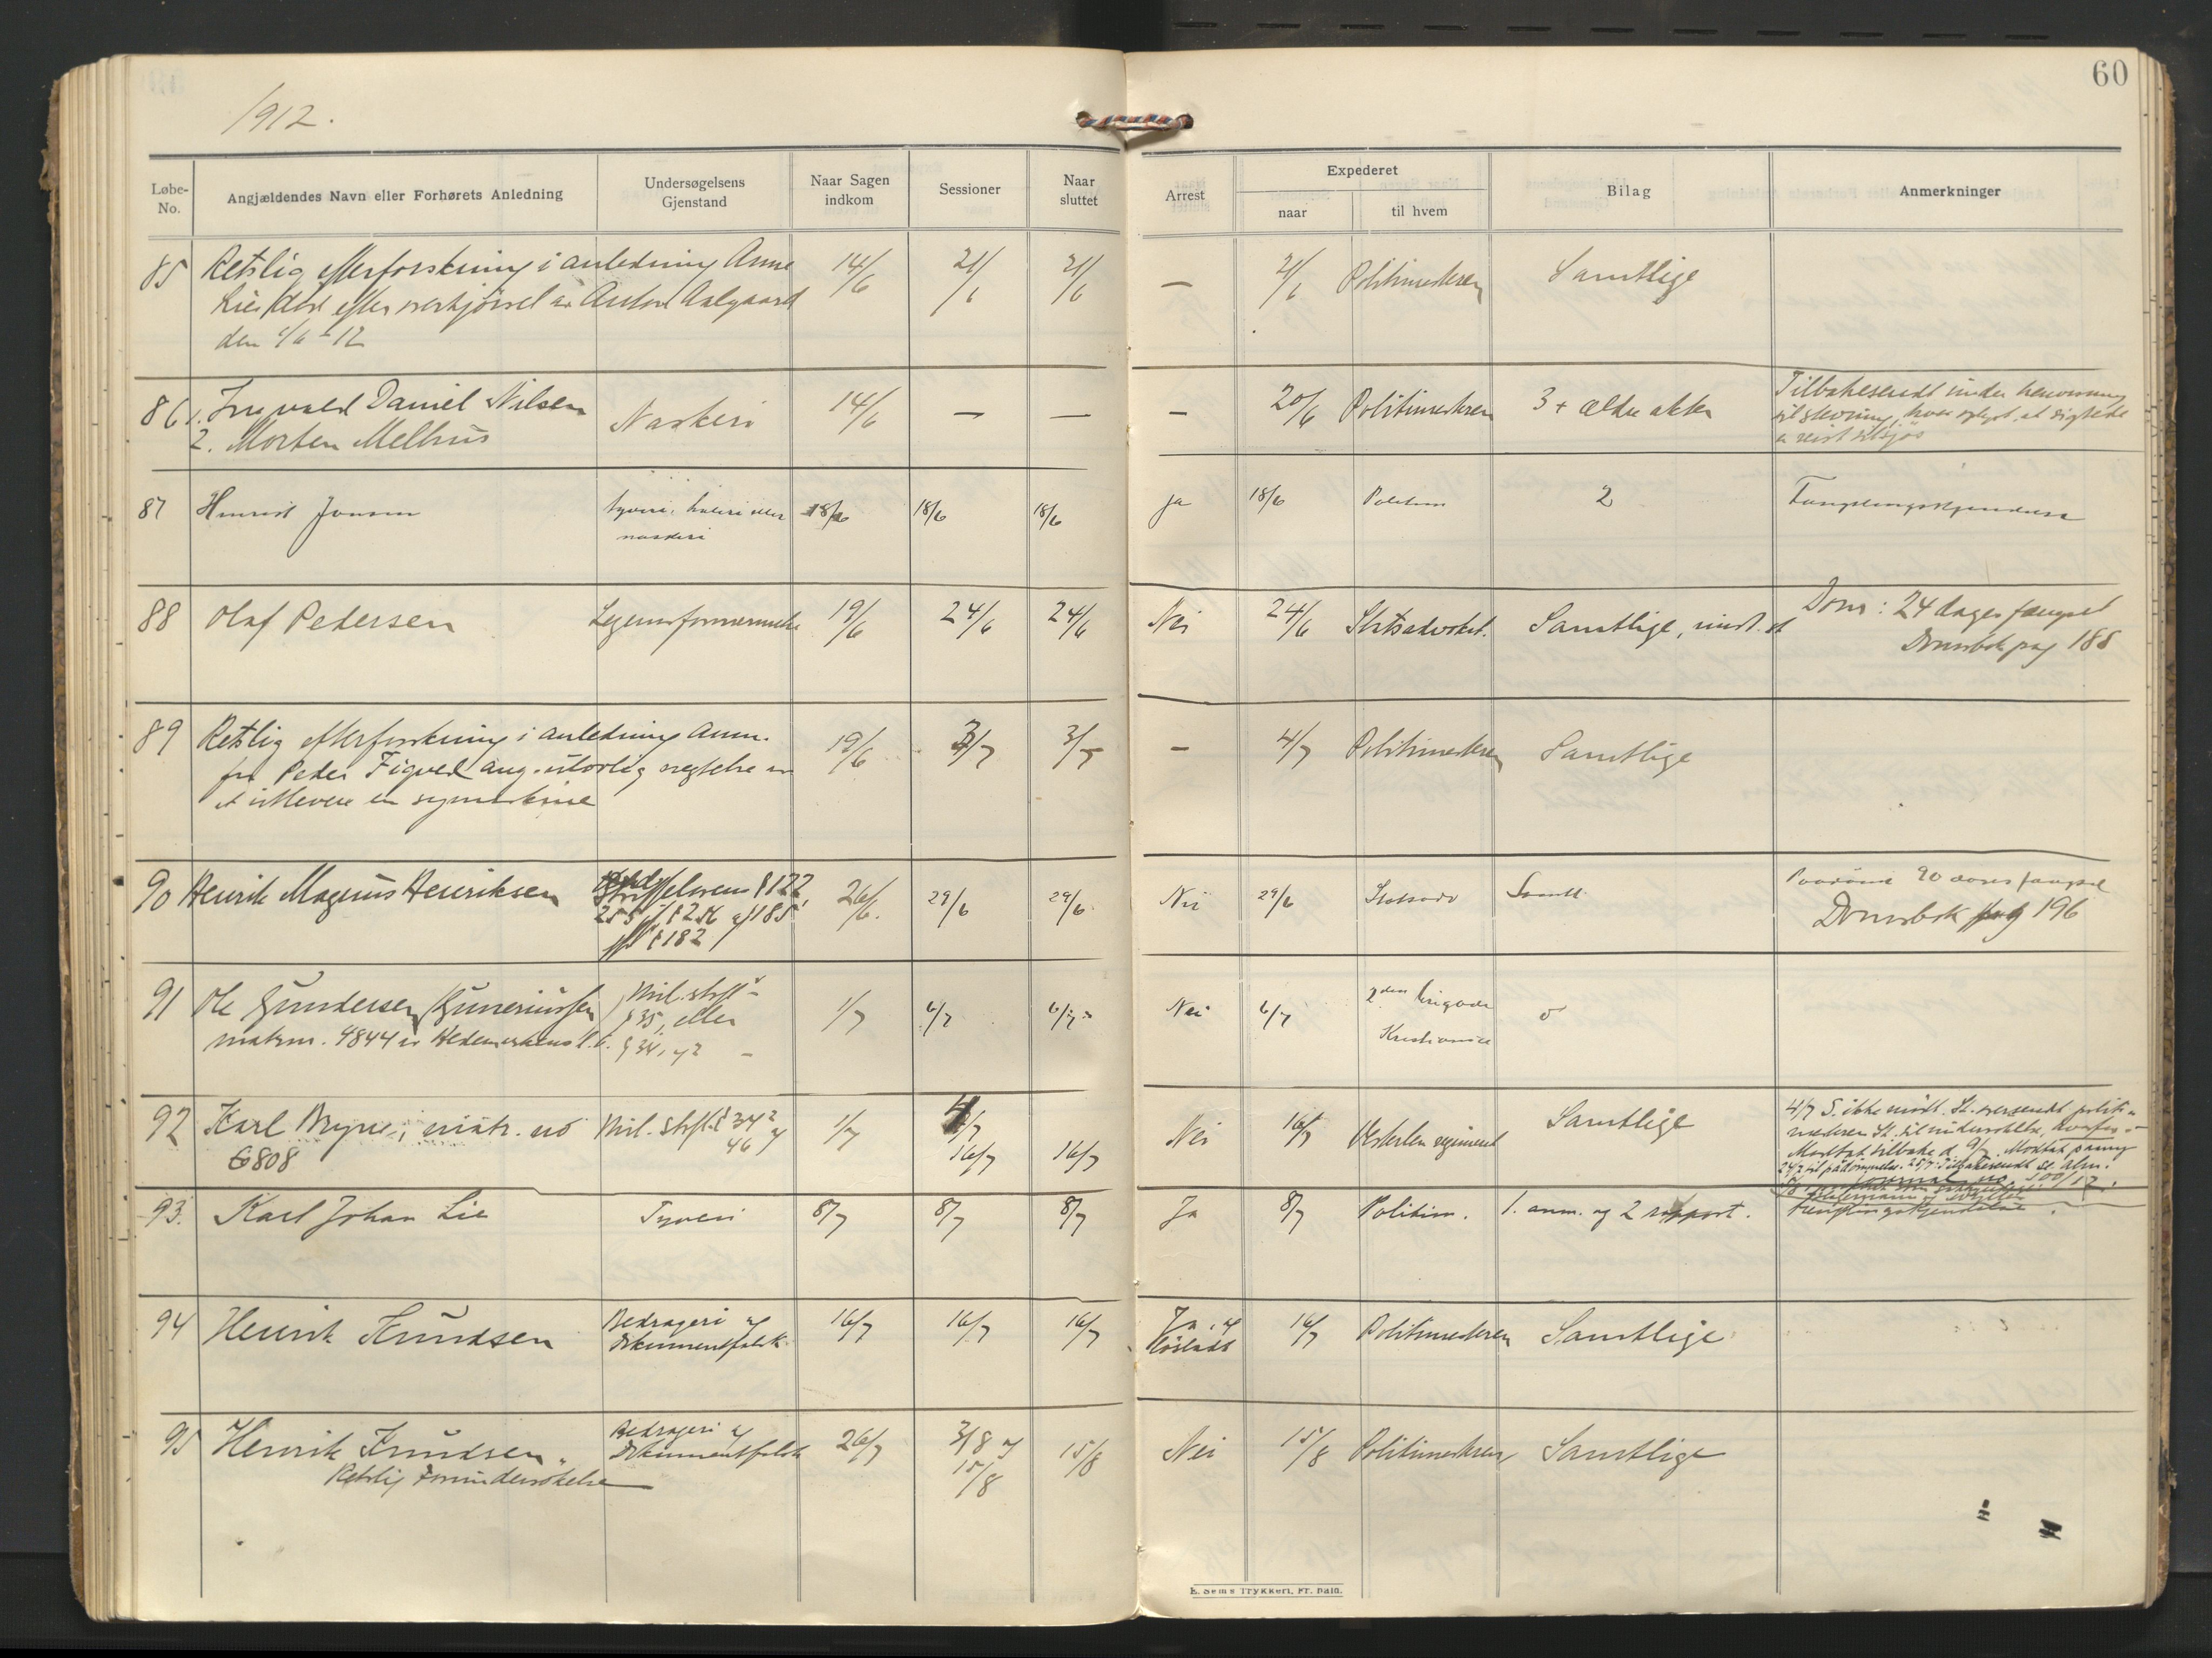 60
1912.
Løbe-No.
Angjældendes Navn eller Forhørets Anledning
Undersøgelsens Gjenstand
Naar Sagen indkom
Sessioner
Naar sluttet
Arrest
Expederet
naar
til hvem
Bilag
Anmerkninger
85 Retslig efterforskning i anledning Anne 14/6 21/6 21/6 — 21/6 Politimesteren Samtlige
Lies død efter overkjørsel av Anton Aalgaard
den /6 - 12
86 1. Ingvald Daniel Nilsen Naskeri 14/6 — — — 20/6 Politimesteren 3 + ældre akter Tilbakesendt under henvisning
2. Morten Melhus til skrivning, hvor oplyst, at sigtede
er reist tilsjøs
87 Henrik Jonsen tyveri, heleri eller 18/6 18/6 18/6 Ja 18/6 Politim 2 Fængslingskjendelse
naskeri
88 Olaf Pedersen Legemsfornærmelse 19/6 24/6 24/6 Nei 24/6 Statsadvokat. Samtlige, Dom: 24 dages fængsel
Domsbok pag 188
89 Retslig efterforskning i anledning Anm. 19/6 3/7 3/7 — 4/7 Politimesteren Samtlige
fra Peder Figved ang. ulovlig negtelse av
at utlevere en symaskine
90 Henrik Magnus Henriksen Straffelovens § 122, 26/6. 29/6 29/6. Nei 29/6 Statsadv Samtl 90 dages fængsel
255 jfr § 256 og 185 Domsbok pag 196
jfr § 182
91 Ole Gundersen (Gunerius sen) Mil. strfl 1/7 6/7 6/7 Nei 6/7 2den brigade
matrnr. 4844 av Hedemarkens § 35, eller Kristiania
§ 34, 2
92 Karl Bryne, matr. no Mil. Strfl. § 34 2 og 46 1/7 4/7 Nei 16/7 Vesterlen regiment Samtlige 4/7 S. ikke mødt. St. oversendt politi-
6808 16/7 16/7 mesteren
Mottat tilbake d. 9/7.
93. Karl Johan Lie Tyveri 8/7 8/7 8/7 Ja 8/7 Politim. 1. anm. og 2 rapport. fængslingskjendelse.
94 Henrik Knudsen Bedrageri og 16/7 16/7 16/7 Ja, og 16/7 Politimesteren Samtlige
dokumentfalsk. løsladt
95 Henrik Knudsen. Bedrageri og 26/7 3/8 og 15/8 Nei 15/8 Politimesteren Samtlige
Retslig Forundersøkelse dokumentfalsk 15/8
E. Sems Trykkeri, Fr. hald.